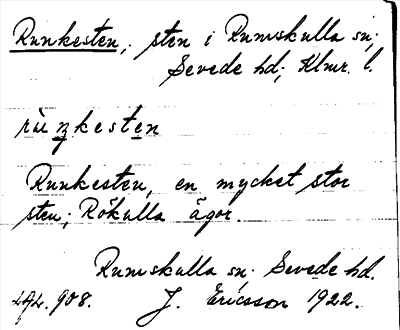 Runkesten, sten i Rumskulla sn;
Sevede hd; Klmr. l.
rùŋkesten
Runkesten, en mycket stor
sten; Rökulla ägor.
Rumskulla sn. Sevede hd.
292.908. J. Ericsson 1922.